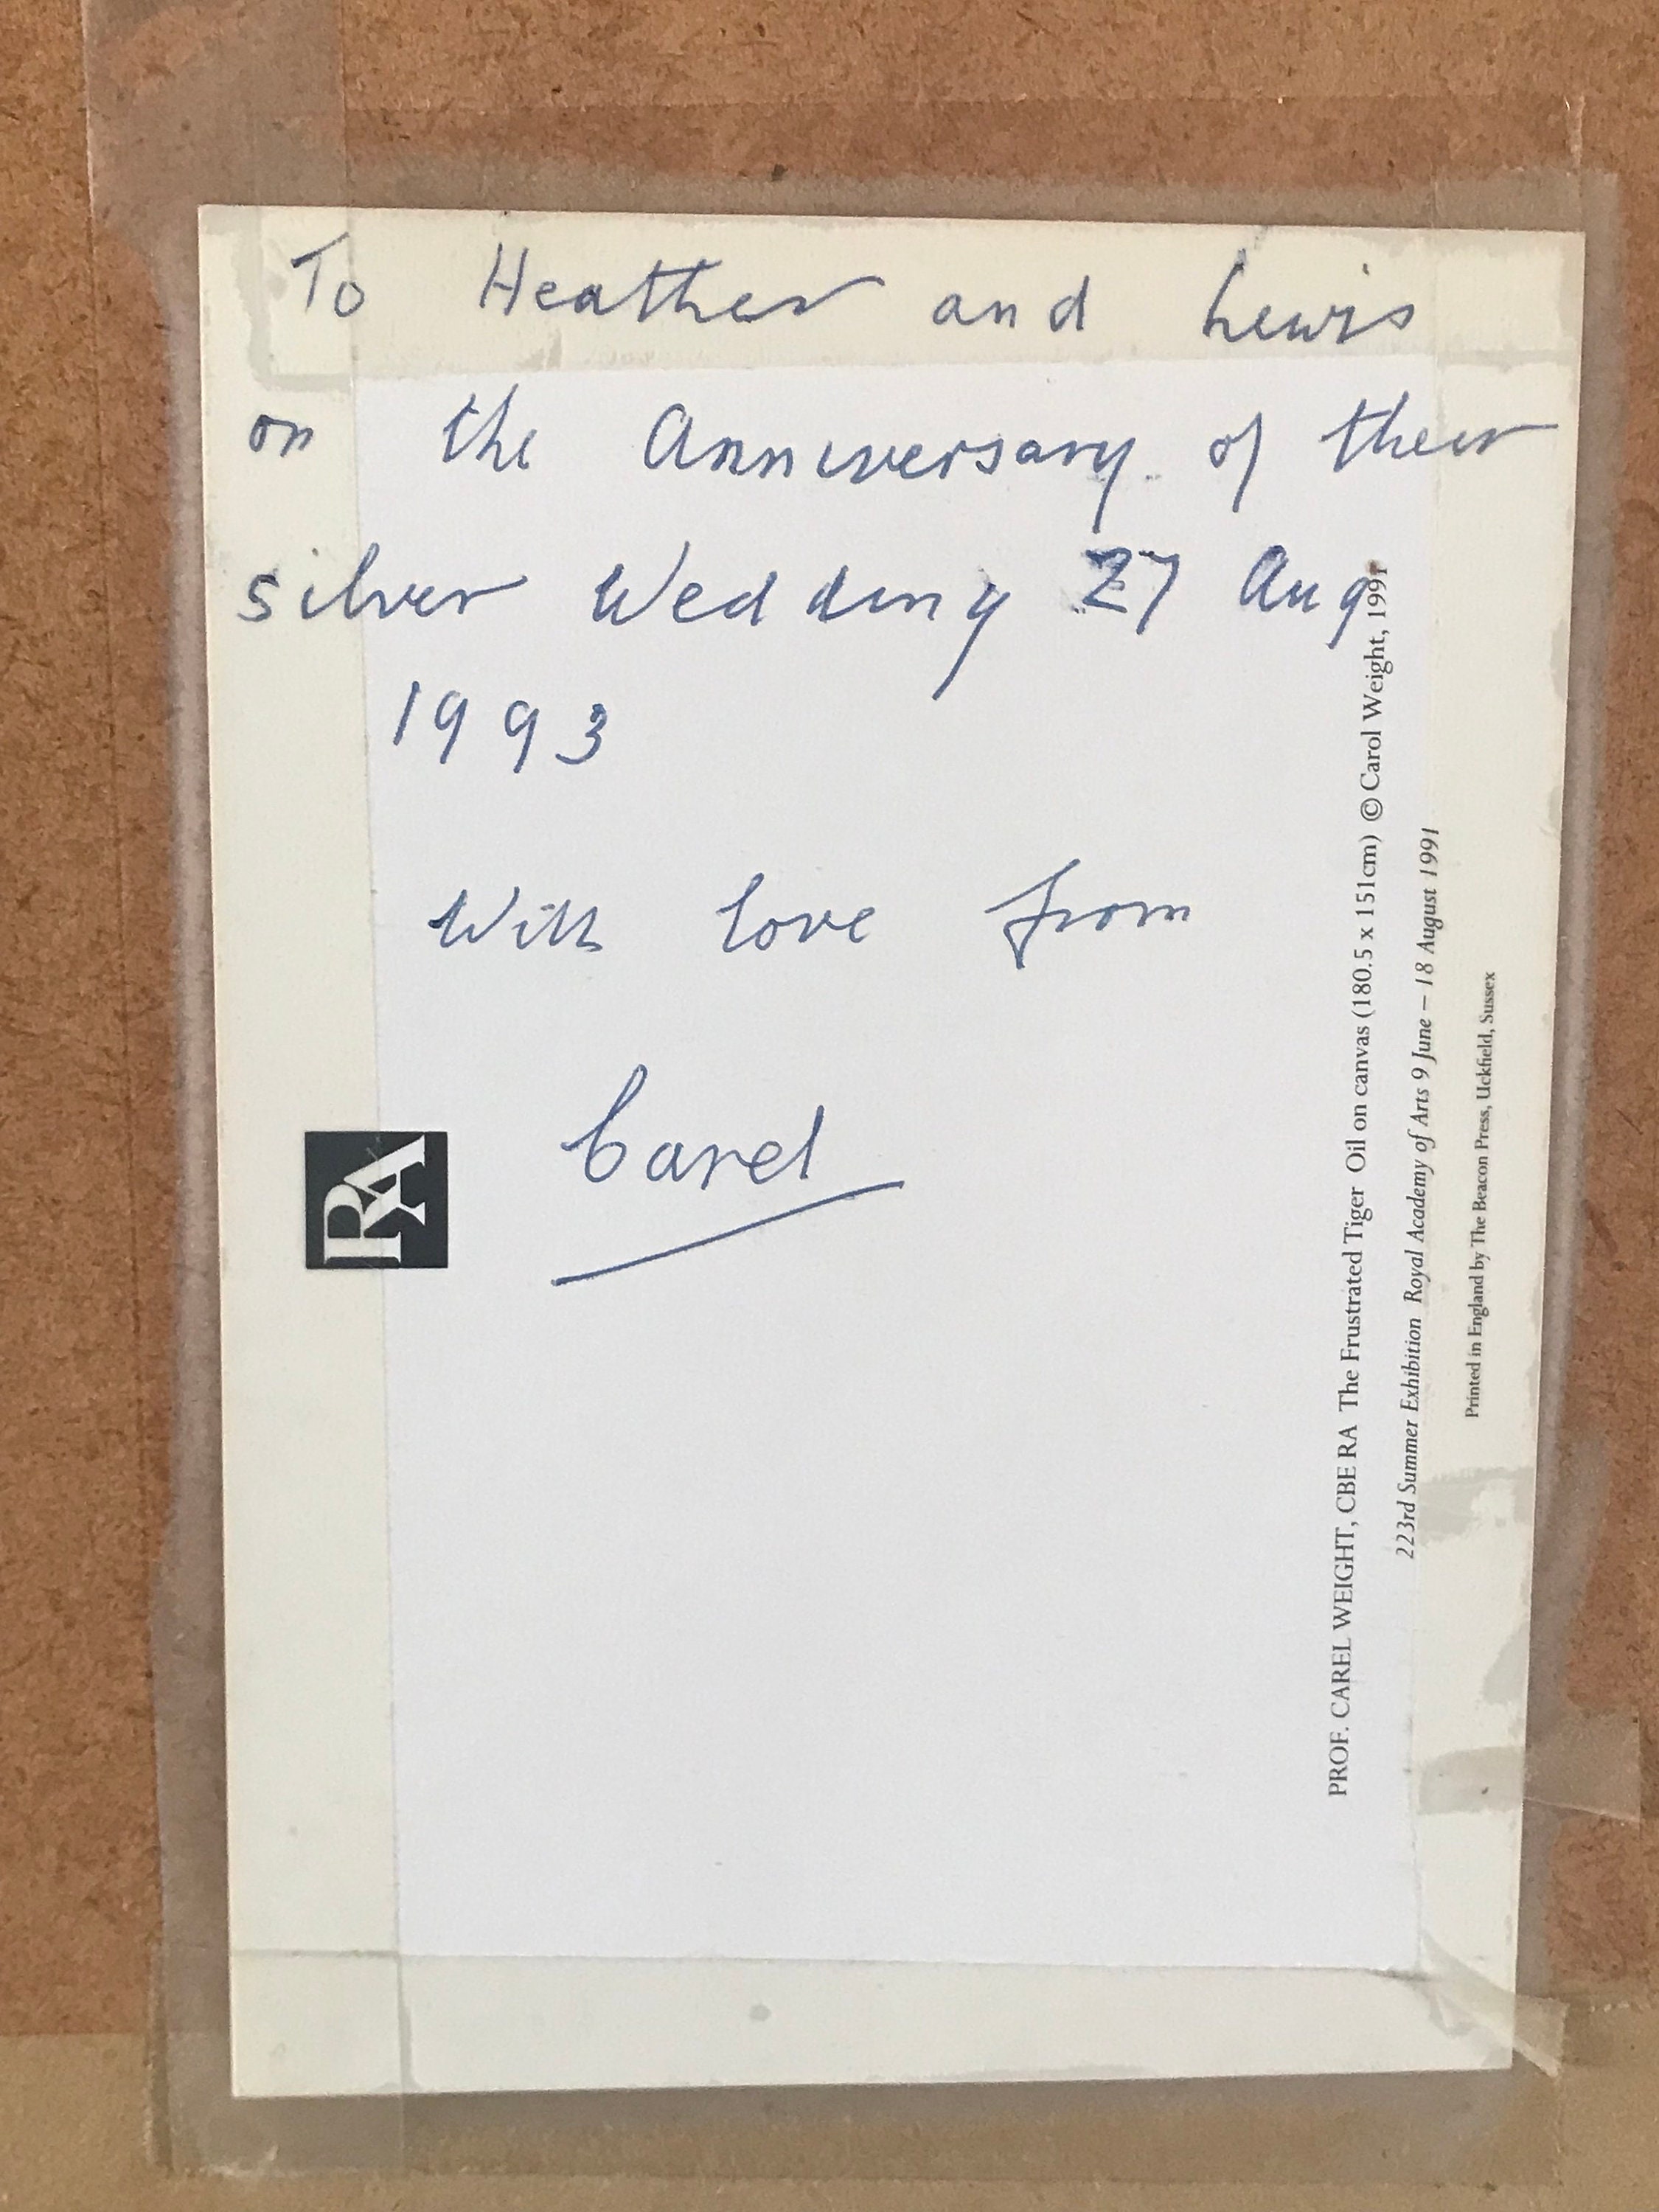 To Heather and Lewis
on the Anniversary of their
silver Wedding 27 Aug
1993
With love from
Carel
RA
PROF. CAREL WEIGHT, CBE RA The Frustrated Tiger Oil on canvas (180.5 x 151cm) © Carol Weight, 1991
223rd Summer Exhibition Royal Academy of Arts 9 June – 18 August 1991
Printed in England by The Beacon Press, Uckfield, Sussex